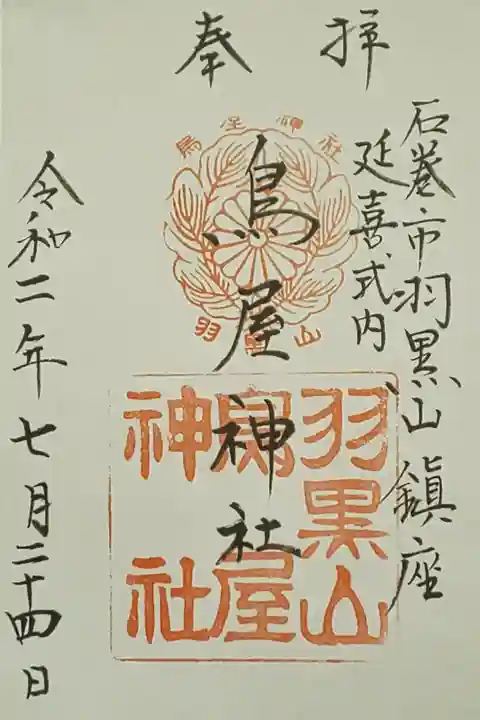 奉拝
石巻市羽黒山鎮座
延喜式内
鳥屋神社
令和二年七月二十四日
鳥屋神社
羽黒山
羽黒山
鳥屋
神社